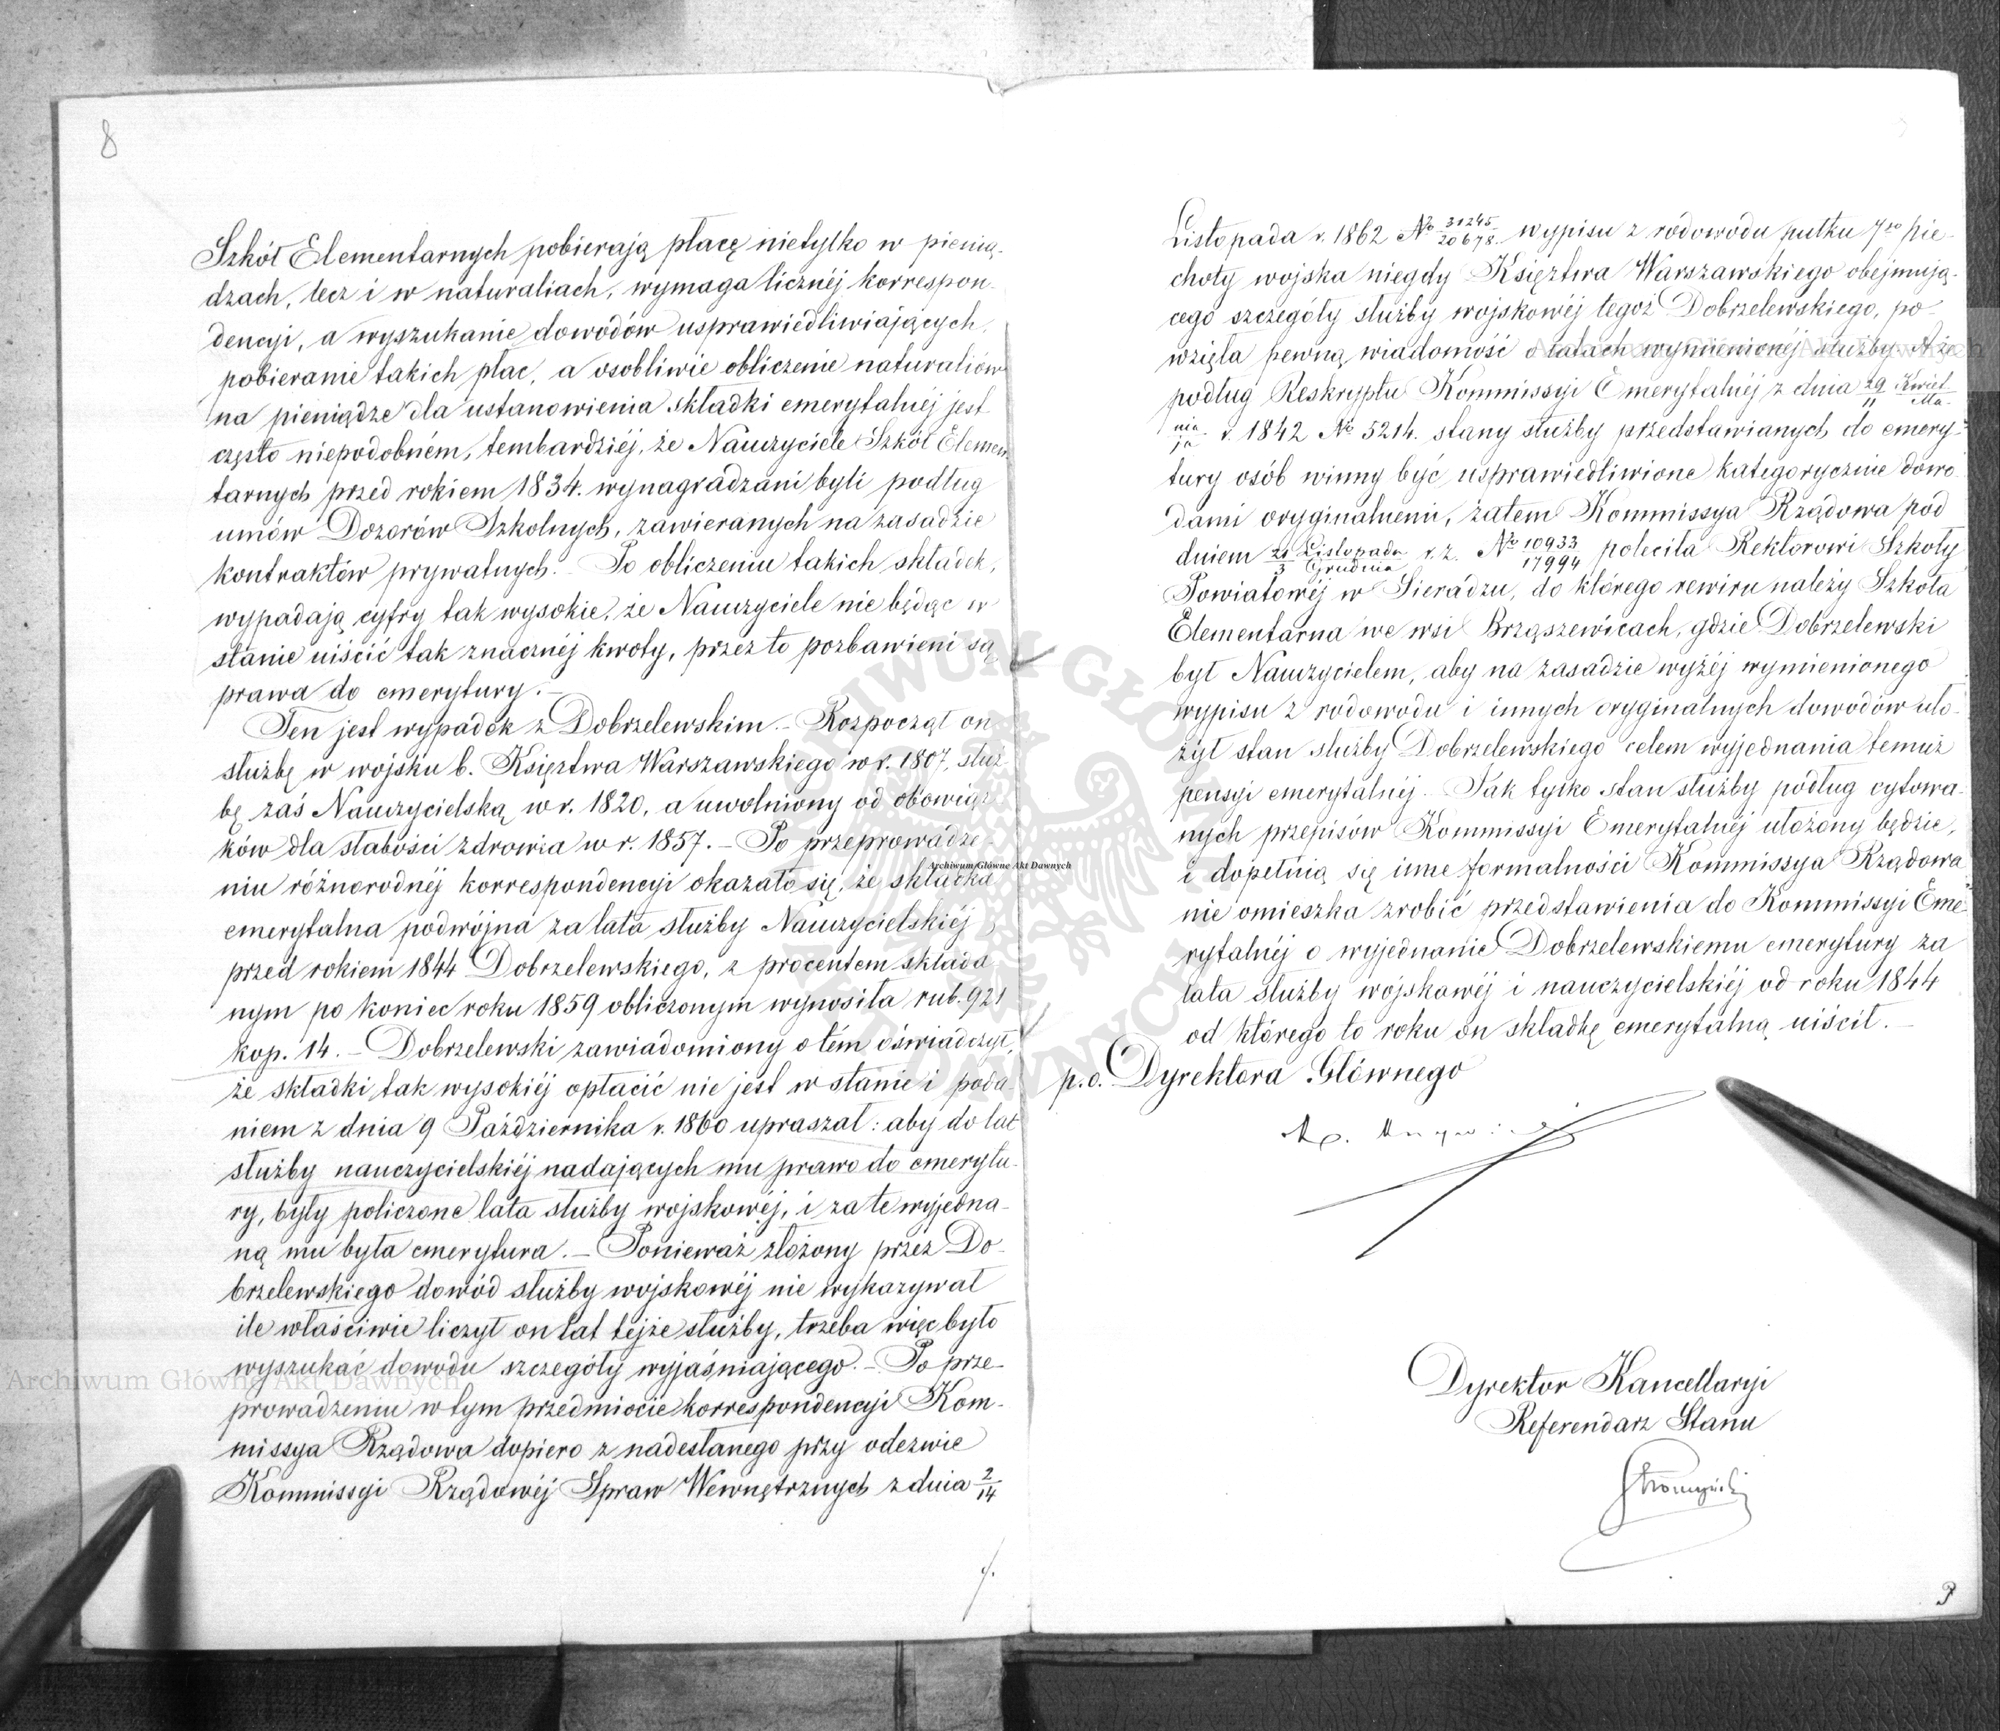 8
Szkół Elementarnych pobierają płacę nietylko w pienią-
dzach, lecz i w naturaliach, wymaga licznéj korrespon-
dencyi, a wyszukanie dowodów usprawiedliwiających
pobieranie takich płac, a osobliwie obliczenie naturaliów
na pieniądze dla ustanowienia składki emerytalnéj jest
często niepodobném, tembardziéj, że Nauczyciele Szkół Elemen
tarnych przed rokiem 1834. wynagradzani byli podług
umów Dozorów Szkolnych, zawieranych na zasadzie
kontraktów prywatnych. – Po obliczeniu takich składek,
wypadają cyfry tak wysokie, że Nauczyciele nie będąc w
stanie uiścić tak znacznéj kwoty, przez to pozbawieni są
prawa do emerytury. –
Ten jest wypadek z Dobrzelewskim. – Rozpoczął on
służbę w wojsku b. Księztwa Warszawskiego w r. 1807, służ
bę zaś Nauczycielską w r. 1820, a uwolniony od obowiąz
ków dla słabości zdrowia w r. 1857. – Po przeprowadze-
niu różnorodnéj korrespondencyi okazało się, że składka
emerytalna podwójna za lata służby Nauczycielskiéj
przed rokiem 1844 Dobrzelewskiego, z procentem składa
nym po koniec roku 1859 obliczonym wynosiła rub. 921
kop. 14. – Dobrzelewski zawiadomiony o tém oświadczył,
że składki tak wysokiéj opłacić nie jest w stanie i poda-
niem z dnia 9 Października r. 1860 upraszał: aby do lat
służby nauczycielskiéj nadających mu prawo do emerytu-
ry, były policzone lata służby wojskowéj, i za te wyjedna-
ną mu była emerytura. – Ponieważ złożony przez Do-
brzelewskiego dowód służby wojskowéj nie wykazywał
ile właściwie liczył on lat tejże służby, trzeba więc było
wyszukać dowodu szczegóły wyjaśniającego. – Po prze-
prowadzeniu w tym przedmiocie korrespondencyi Kom-
missya Rządowa dopiero z nadesłanego przy odezwie
Kommissyi Rządowéj Spraw Wewnętrznych z dnia 2/14
Listopada r. 1862 No 31245/20678. wypisu z rodowodu pułku 7go pie-
choty wojska niegdy Księztwa Warszawskiego obejmują-
cego szczegóły służby wojskowéj tegoż Dobrzelewskiego, po-
wzięła pewną wiadomość o latach wymienionéj służby. A że
podług Reskryptu Kommissyi Emerytalnéj z dnia 29/11 Kwiet/Ma-
nia/ja r. 1842 No 5214. stany służby przedstawianych do emery-
tury osób winny być usprawiedliwione kategorycznie dowo
dami oryginalnemi, zatem Kommissya Rządowa pod
dniem 21/3 Listopada/Grudnia r. z. No 10933/17994 poleciła Rektorowi Szkoły
Powiatowéj w Sieradzu, do którego rewiru należy Szkoła
Elementarna we wsi Brząszewicach, gdzie Dobrzelewski
był Nauczycielem, aby na zasadzie wyżéj wymienionego
wypisu z rodowodu i innych oryginalnych dowodów uło-
żył stan służby Dobrzelewskiego celem wyjednania temuż
pensyi emerytalnéj. – Jak tylko stan służby podług cytowa-
nych przepisów Kommissyi Emerytalnéj ułożony będzie,
i dopełnią się inne formalności Kommissya Rządowa
nie omieszka zrobić przedstawienia do Kommissyi Eme-
rytalnéj o wyjednanie Dobrzelewskiemu emerytury za
lata służby wojskowéj i nauczycielskiéj od roku 1844
od którego to roku on składkę emerytalną uiścił. –
p. o. Dyrektora Głównego
Dyrektor Kancellaryi
Referendarz Stanu
Stronczyński
Archiwum Główne Akt Dawnych